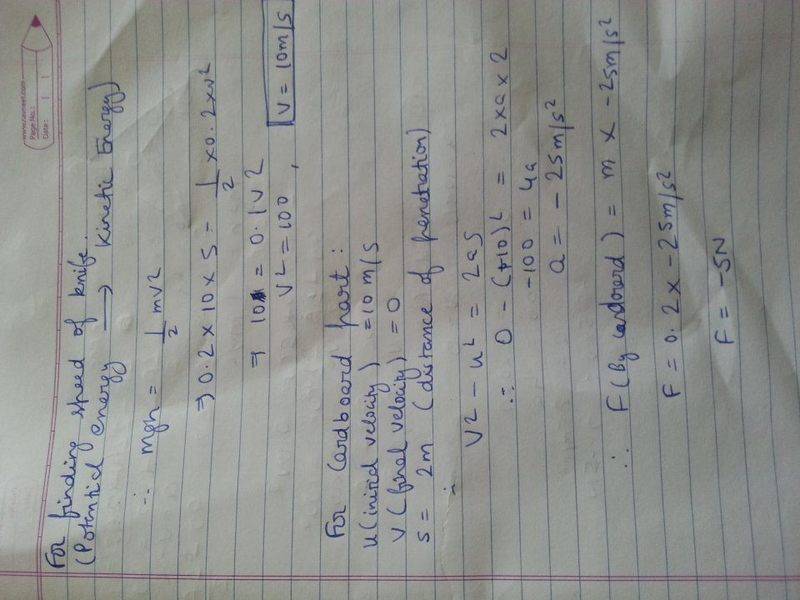 www.navneet.com
Page No.:
Date:
For finding speed of knife.
(Potential energy → Kinetic Energy)
∴ mgh = 1/2 mv2
⇒ 0.2 x 10 x 5 = 1/2 x 0.2 x v2
⇒ 10 = 0.1 v2
v2 = 100 , v = 10m/s
For Cardboard part :
u (initial velocity) = 10 m/s
v (final velocity) = 0
s = 2m (distance of penetration)
∴ v2 - u2 = 2as
∴ 0 - (+10)2 = 2 x a x 2
-100 = 4a
a = - 25 m/s2
∴ F (by cardboard) = m x -25m/s2
F = 0.2 x -25m/s2
F = -5N